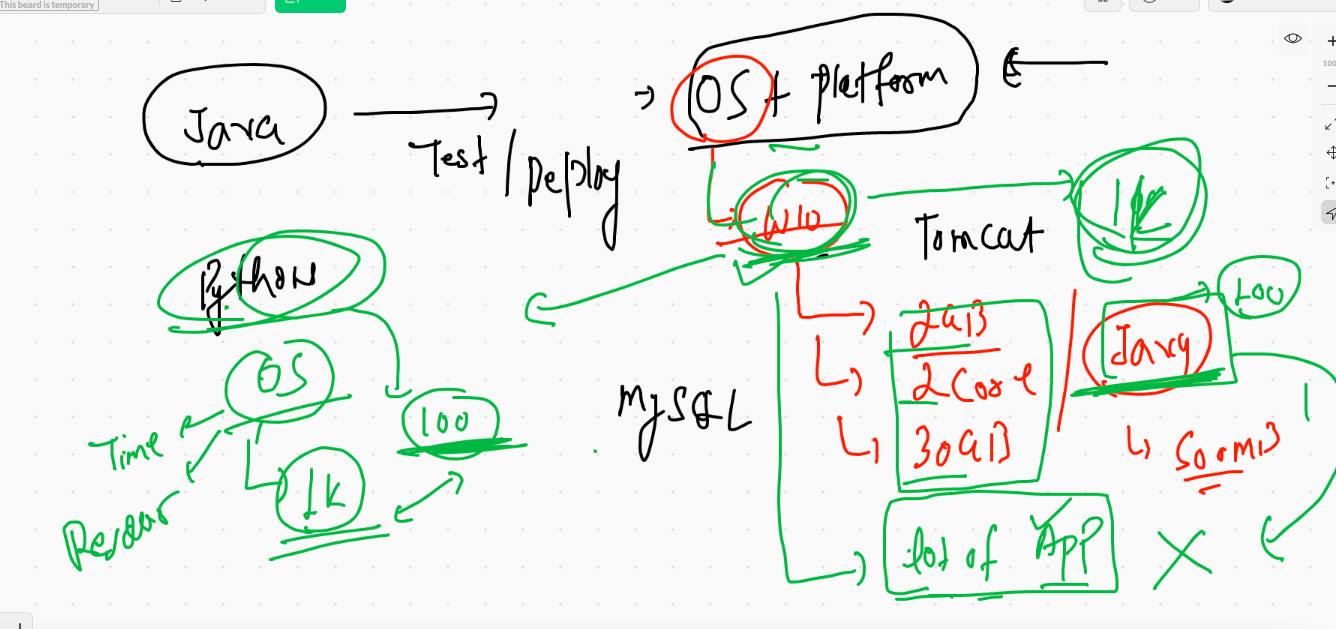 This board is temporary
Java
Test / Deploy
→ OS + Platform
W10
Tomcat
1K
Python
OS
Time
100
1K
MySQL
2GB
2 Core
30GB
Java
100
500MB
lot of APP
100